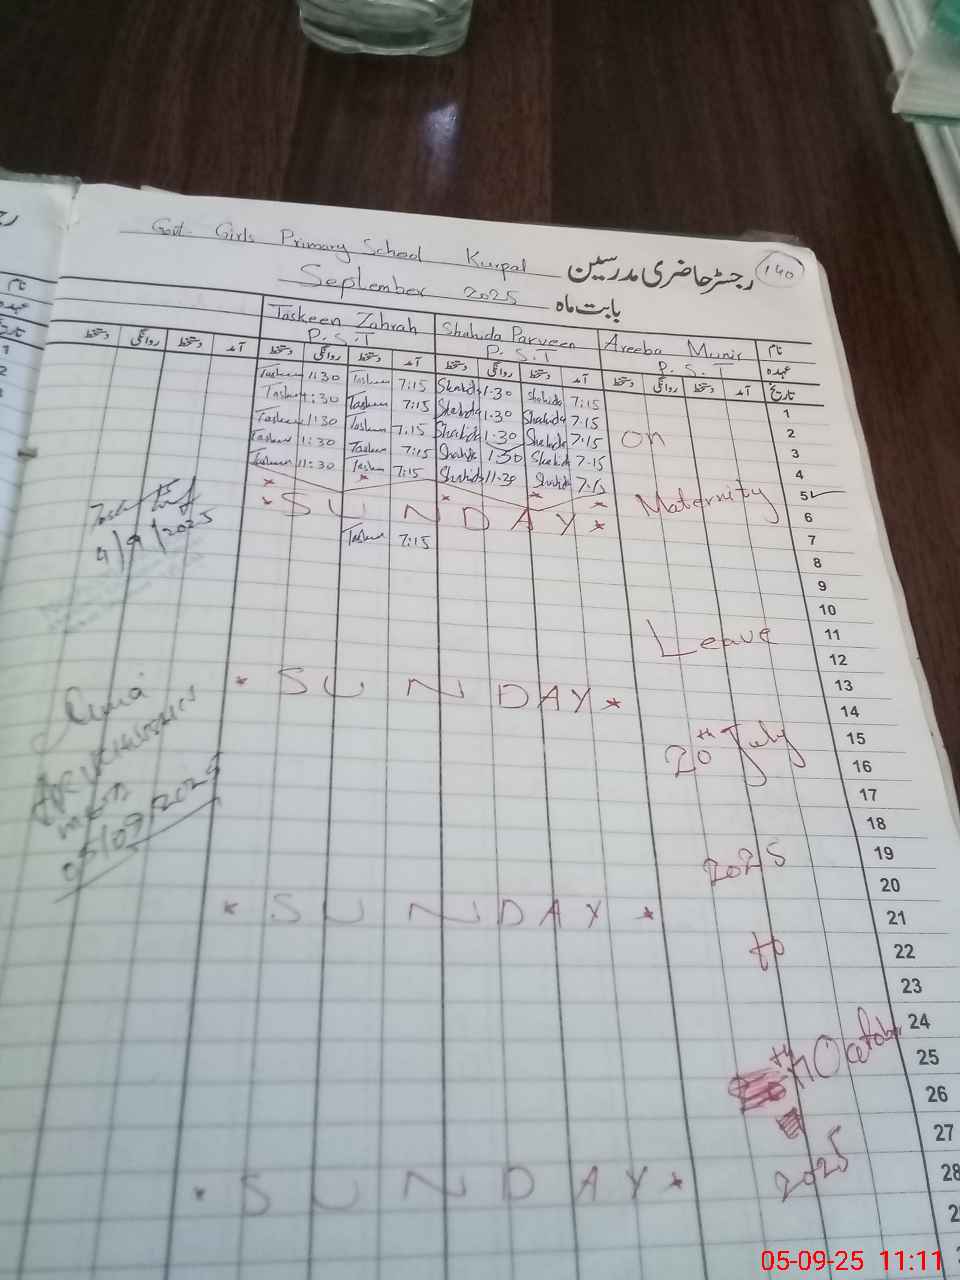 Govt. Girls Primary School Kurpal
رجسٹر حاضری مدرسین
140
September 2025
بابت ماہ
Taskeen Zahrah Shahida Parveen Areeba Munir نام
P.S.T P.S.T P.S.T عہدہ
دستخط روانگی دستخط آمد دستخط روانگی دستخط آمد دستخط روانگی دستخط آمد دستخط روانگی دستخط آمد تاریخ
Taskeen 1:30 Taskeen 7:15 Shahida 1.30 Shahida 7:15 1
Taskeen 1:30 Taskeen 7:15 Shahida 1.30 Shahida 7.15 2
Taskeen 1:30 Taskeen 7.15 Shahida 1.30 Shahida 7:15 3
Taskeen 1:30 Taskeen 7:15 Shahida 1:30 Shahida 7-15 4
Taskeen 11:30 Taskeen 7:15 Shahida 11.30 Shahida 7:15 5
On
Maternity
SUNDAY
6
Taskeen 7:15 7
4/9/2025
8
9
10
Leave
11
12
13
SUNDAY
14
20th July
15
16
17
05/09/2025
18
2025
19
20
SUNDAY
21
to
22
23
24
th October
25
26
27
SUNDAY
2025
28
05-09-25 11:11